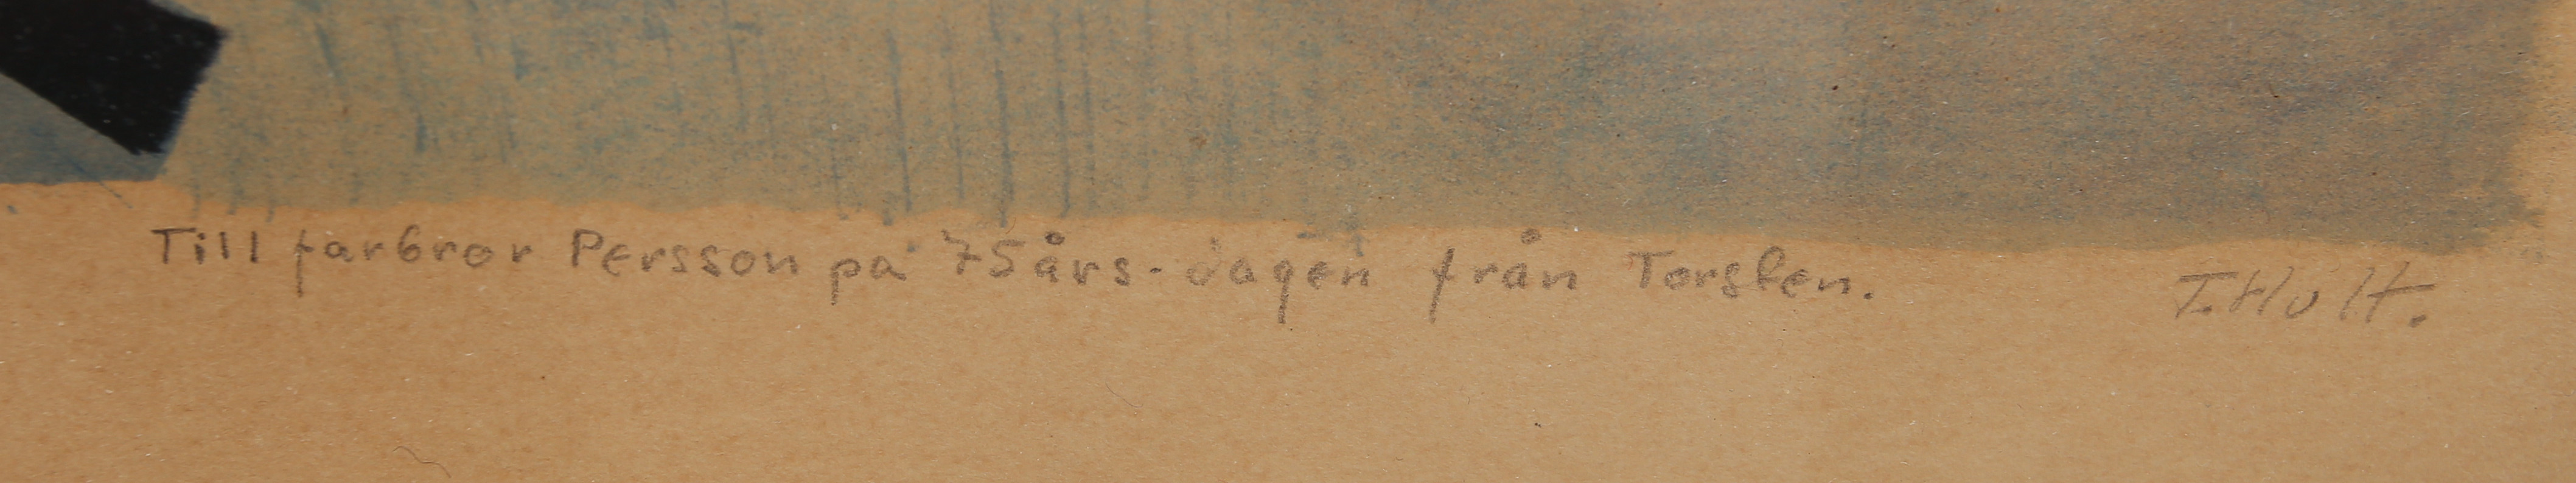 Till farbror Persson på 75års-dagen från Torsten.
T.Hult.